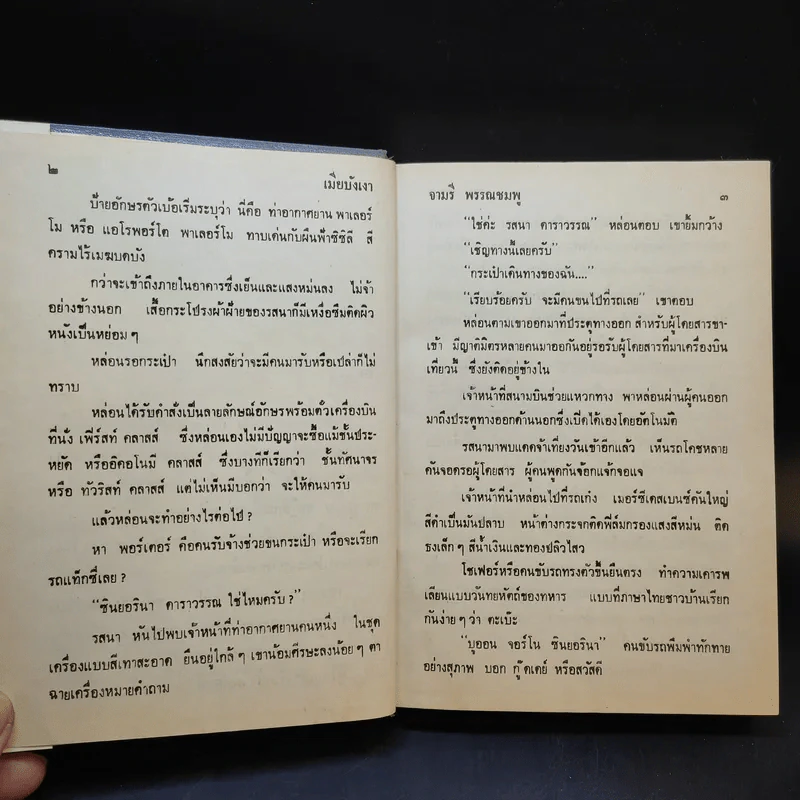 ๒
เมียบังเงา
ป้ายอักษรตัวเบ้อเริ่มระบุว่า นี่คือ ท่าอากาศยาน พาเลอร์
โม หรือ แอโรพอร์โต พาเลอร์โม ทาบเด่นกับผืนฟ้าซิซิลี สี
ครามไร้เมฆบดบัง
กว่าจะเข้าถึงภายในอาคารซึ่งเย็นและแสงหม่นลง ไม่จ้า
อย่างข้างนอก เสื้อกระโปรงผ้าฝ้ายของรสนาก็มีเหงื่อซึมติดผิว
หนังเป็นหย่อม ๆ
หล่อนรอกระเป๋า นึกสงสัยว่าจะมีคนมารับหรือเปล่าก็ไม่
ทราบ
หล่อนได้รับคำสั่งเป็นลายลักษณ์อักษรพร้อมตั๋วเครื่องบิน
ที่นั่ง เฟิร์สท์ คลาสส์ ซึ่งหล่อนเองไม่มีปัญญาจะซื้อแม้ชั้นประ-
หยัด หรืออิคอโนมี คลาสส์ ซึ่งบางทีก็เรียกว่า ชั้นทัศนาจร
หรือ ทัวริสท์ คลาสส์ แต่ไม่เห็นมีบอกว่า จะให้คนมารับ
แล้วหล่อนจะทำอย่างไรต่อไป ?
หา พอร์เตอร์ คือคนรับจ้างช่วยขนกระเป๋า หรือจะเรียก
รถแท็กซี่เลย ?
“ซินยอรินา ดาราวรรณ ใช่ไหมครับ ?”
รสนา หันไปพบเจ้าหน้าที่ท่าอากาศยานคนหนึ่ง ในชุด
เครื่องแบบสีเทาสะอาด ยืนอยู่ใกล้ ๆ เขาน้อมศีรษะลงน้อย ๆ ตา
ฉายเครื่องหมายคำถาม
จามรี พรรณชมพู
๓
“ใช่ค่ะ รสนา ดาราวรรณ” หล่อนตอบ เขายิ้มกว้าง
“เชิญทางนี้เลยครับ”
“กระเป๋าเดินทางของฉัน....”
“เรียบร้อยครับ จะมีคนขนไปที่รถเลย” เขาตอบ
หล่อนตามเขาออกมาที่ประตูทางออก สำหรับผู้โดยสารขา-
เข้า มีญาติมิตรหลายคนมาออกันอยู่รอรับผู้โดยสารที่มาเครื่องบิน
เที่ยวนี้ ซึ่งยังติดอยู่ข้างใน
เจ้าหน้าที่สนามบินช่วยแหวกทาง พาหล่อนผ่านผู้คนออก
มาถึงประตูทางออกด้านนอกซึ่งเปิดได้เองโดยอัตโนมัติ
รสนามาพบแดดจ้าเที่ยงวันเข้าอีกแล้ว เห็นรถโคชหลาย
คันจอดรอผู้โดยสาร ผู้คนพูดกันจ๊อกแจ๊กจอแจ
เจ้าหน้าที่นำหล่อนไปที่รถเก๋ง เมอร์ซีเดสเบนซ์คันใหญ่
สีดำเป็นมันปลาบ หน้าต่างกระจกติดฟิล์มกรองแสงสีหม่น ติด
ธงเล็ก ๆ สีน้ำเงินและทองปลิวไสว
โชเฟอร์หรือคนขับรถทรงตัวขึ้นยืนตรง ทำความเคารพ
เลียนแบบวันทยหัตถ์ของทหาร แบบที่ภาษาไทยชาวบ้านเรียก
กันง่าย ๆ ว่า ตะเบ๊ะ
“บูออน จอร์โน ซินยอรินา” คนขับรถพึมพำทักทาย
อย่างสุภาพ บอก กู๊ดเดย์ หรือสวัสดี